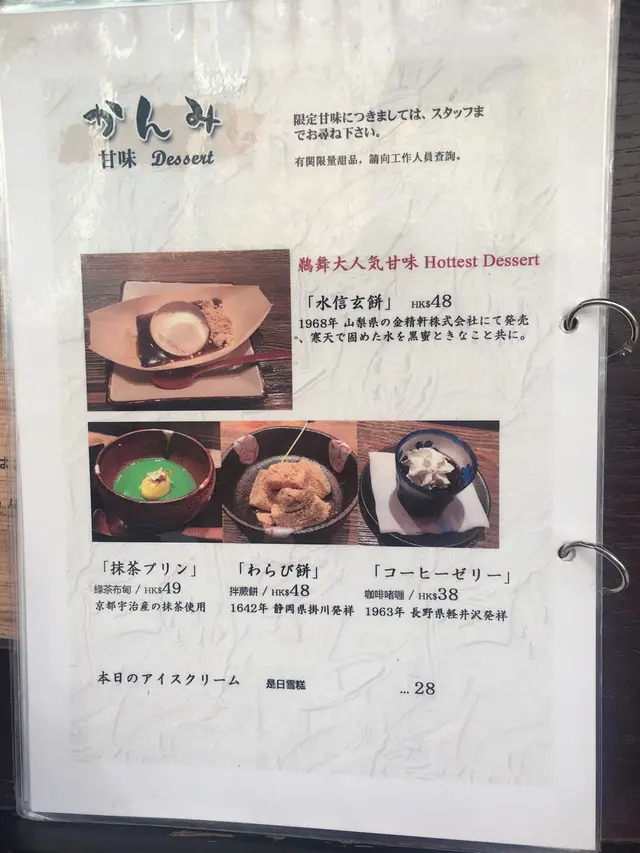 かんみ
甘味 Dessert
限定甘味につきましては、スタッフま
でお尋ね下さい。
有関限量甜品，請向工作人員查詢。
鵜舞大人気甘味 Hottest Dessert
「水信玄餅」 HK$48
1968年 山梨県の金精軒株式会社にて発売
。、寒天で固めた水を黒蜜ときなこと共に。
「抹茶プリン」
綠茶布甸 / HK$49
京都宇治産の抹茶使用
「わらび餅」
拌蕨餅 / HK$48
1642年 静岡県掛川発祥
「コーヒーゼリー」
咖啡啫喱 / HK$38
1963年 長野県軽井沢発祥
本日のアイスクリーム 是日雪糕 ... 28
は